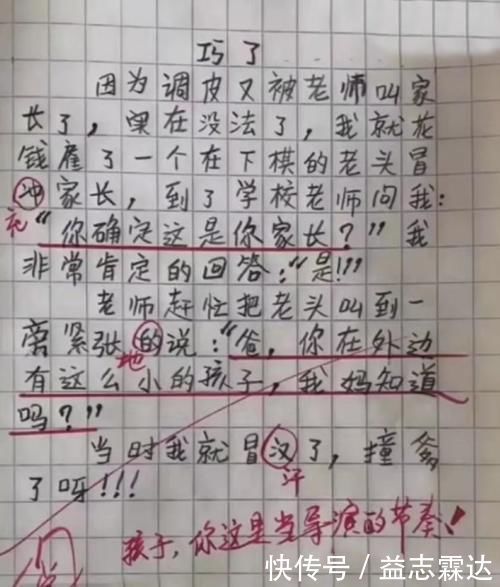 巧了
因为调皮又被老师叫家
长了，实在没法了，我就花
钱雇了一个在下棋的老头冒
冲家长，到了学校老师问我：
充
“你确定这是你家长？”我
非常肯定的回答：“是!!!”
老师赶忙把老头叫到一
旁紧张的说：“爸，你在外边
地
有这么小的孩子，我妈知道
吗？”
当时我就冒汉了，撞爹
汗
了呀!!!
孩子，你这是当导演的节奏！
快传号／益志霖达